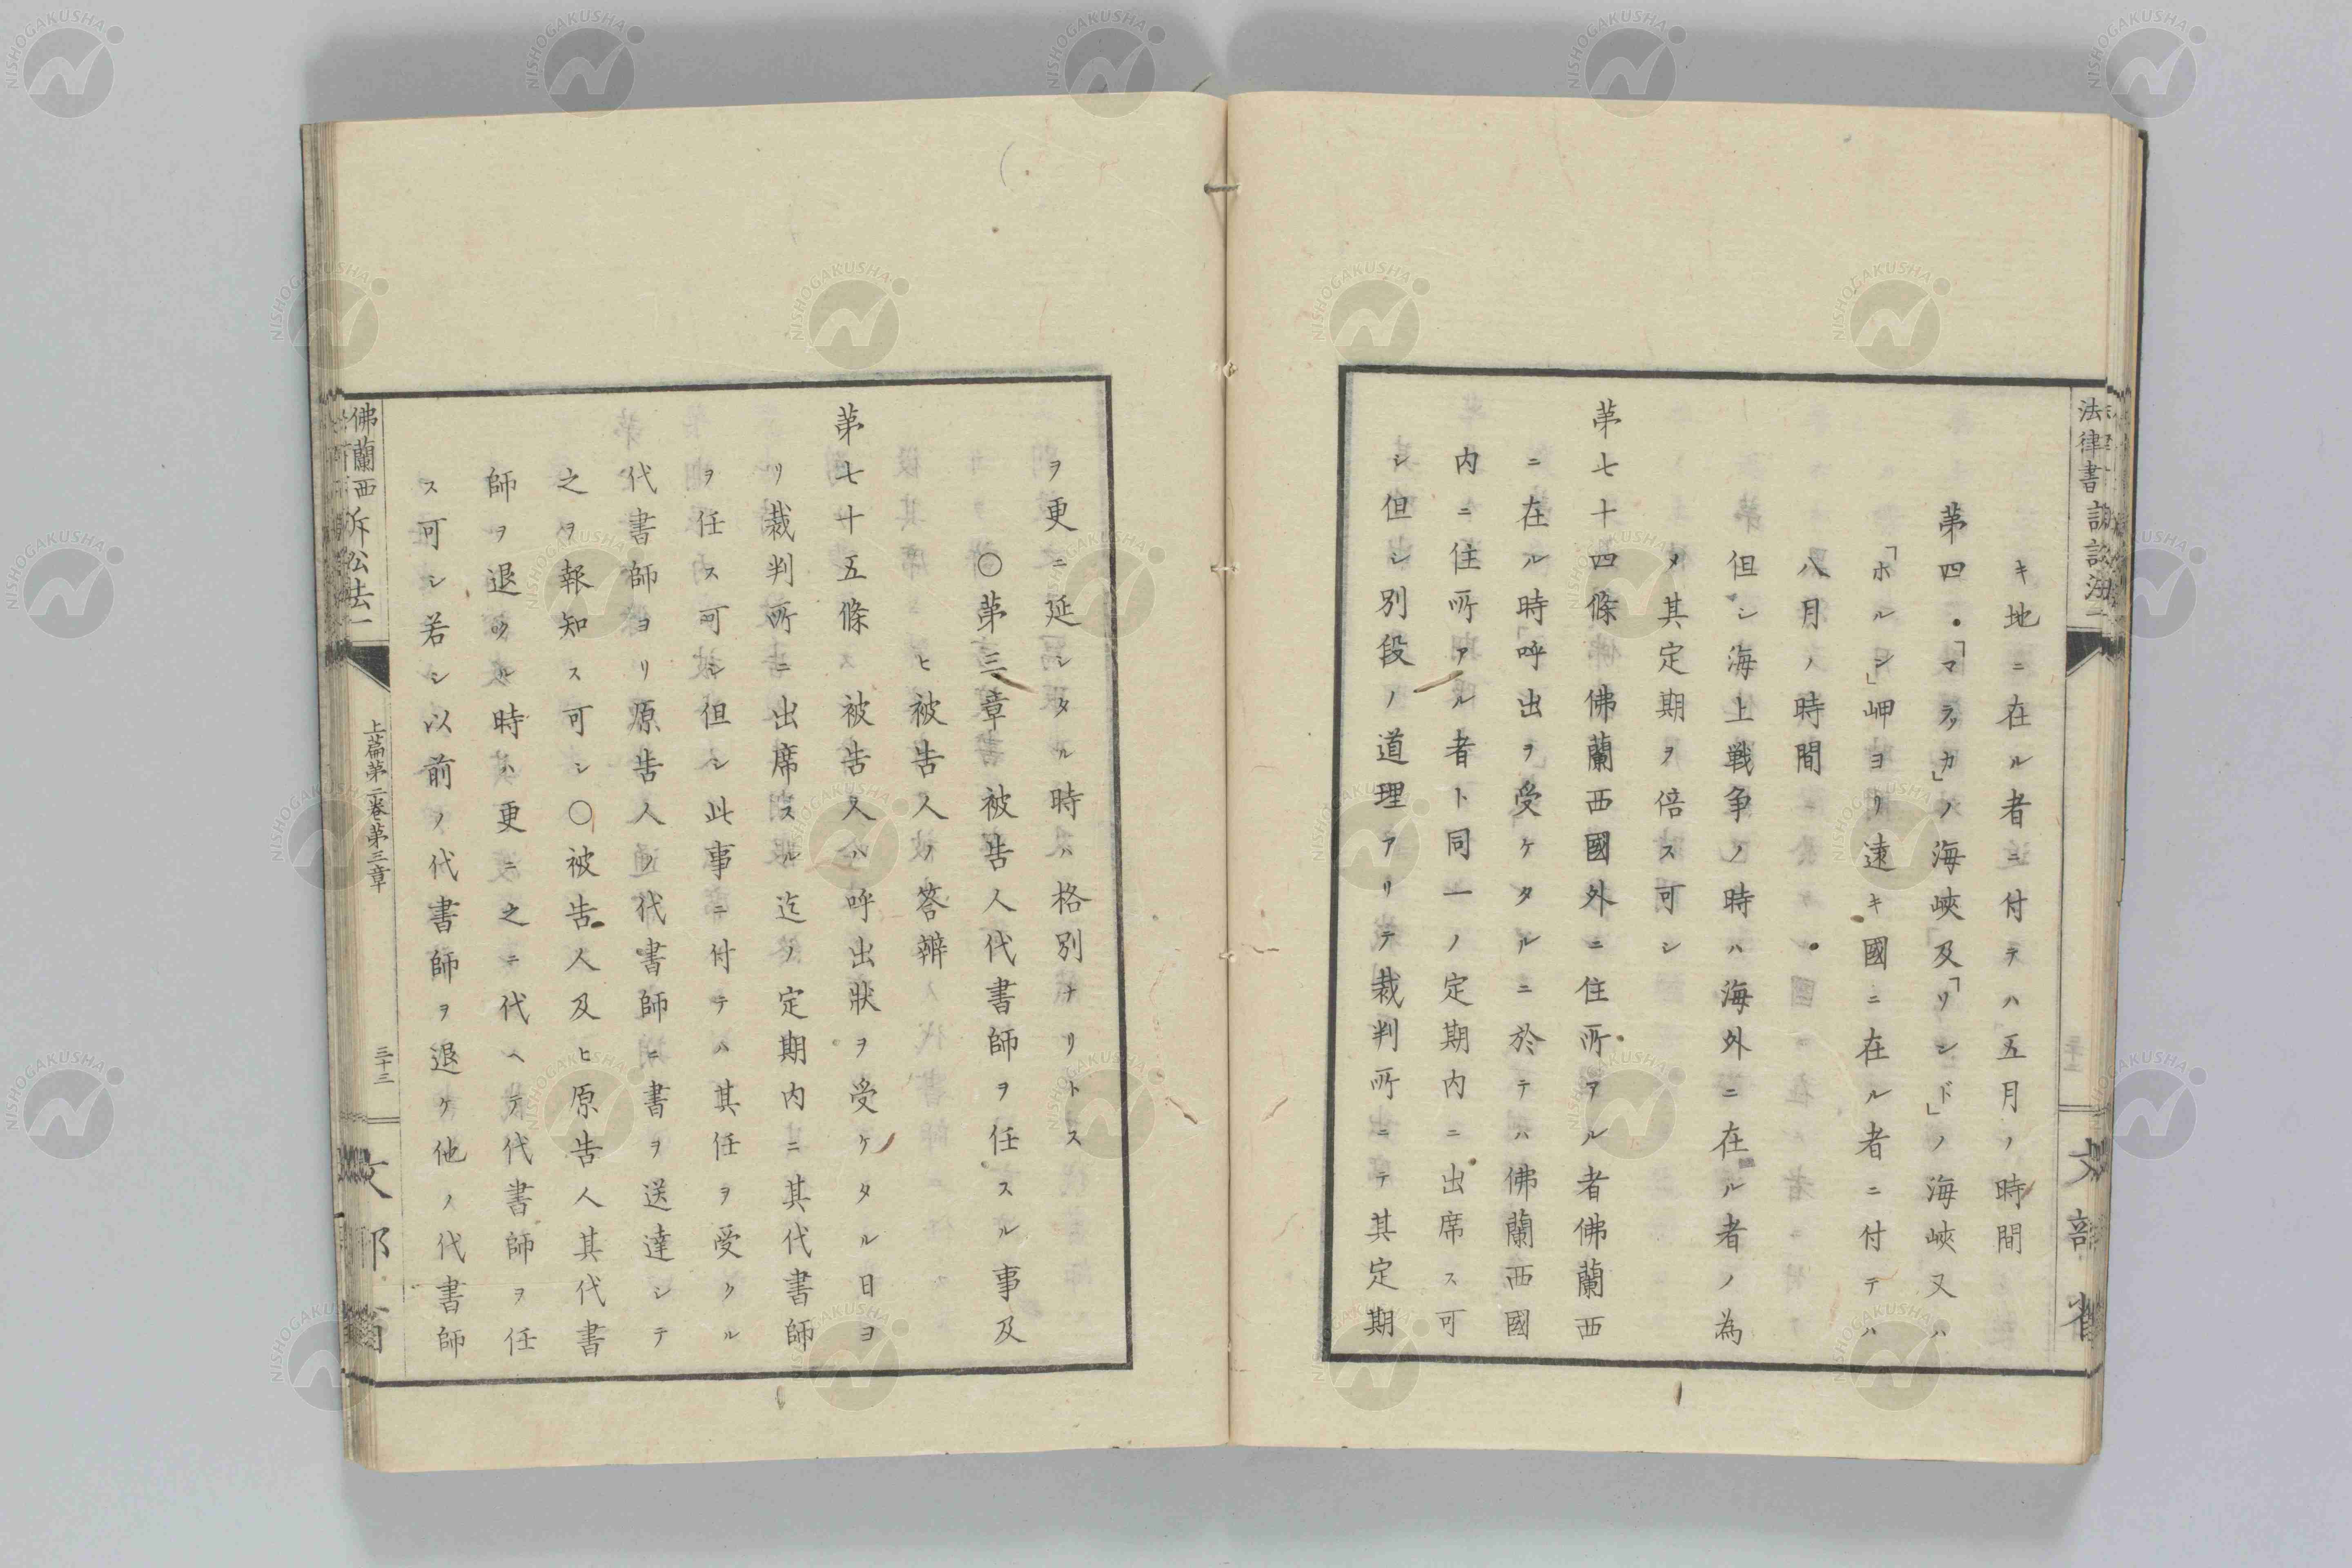 キ地ニ在ル者ニ付テハ五月ノ時間
第四.「マラッカ」ノ海峡及「リンド」ノ海峡又ハ
「ホルン」岬ヨリ遠キ國ニ在ル者ニ付テハ
八月ノ時間.
但シ海上戦争ノ時ハ海外ニ在ル者ノ為
メ其定期ヲ倍ス可シ
第七十四條佛蘭西國外ニ住所ヲル者佛蘭西
ニ在ル時呼出ヲ受ケタルニ於テハ佛蘭西國
内ニ住所アル者ト同一ノ定期内ニ出席ス可
シ但シ別段ノ道理アリテ裁判所ニテ其定期
文部省
ヲ更ニ延シタル時ハ格別ナリトス
〇第三章被告人代書師ヲ任スル事及
ヒ被告人ノ答辯
第七十五條被告人ハ呼出狀ヲ受ケタル日ヨ
リ裁判所ニ出席スル迄ノ定期内ニ其代書師
ヲ任ス可シ但シ此事ニ付テハ其任ヲ受クル
代書師ヨリ原告人ノ代書師ニ書ヲ送達シテ
之ヲ報知ス可シ〇被告人及ヒ原告人其代書
師ヲ退クル時ハ更ニ之ニ代ヘテ代書師ヲ任
ス可シ若シ以前ノ代書師ヲ退ケ他ノ代書師
佛蘭西訴訟法一
上篇第二巻第三章
三十三
NISHOGAKUSHA